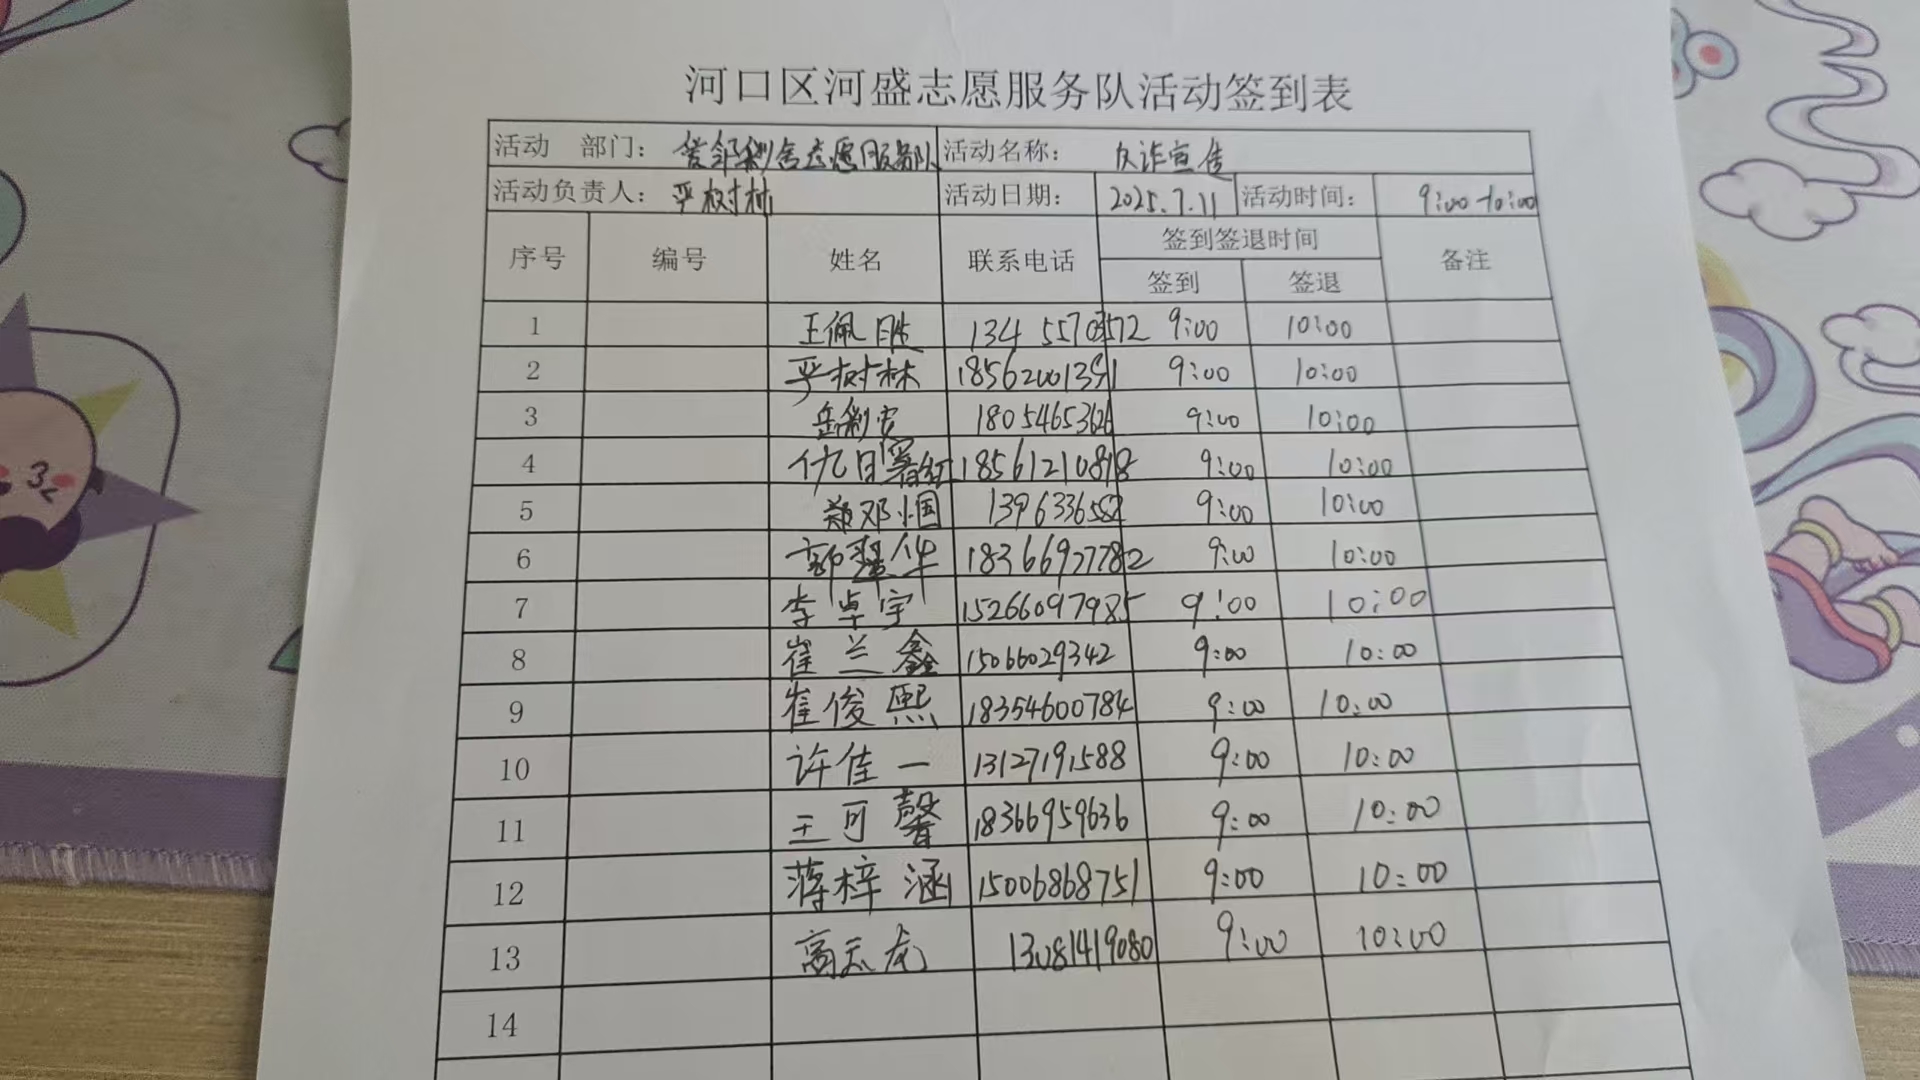 河口区河盛志愿服务队活动签到表
活动 部门: 志愿服务队 活动名称: 反诈宣传
活动负责人: 平树林 活动日期: 2025.7.11 活动时间: 9:00-10:00
序号 编号 姓名 联系电话 签到签退时间 备注
签到 签退
1 王佩胜 9:00 10:00
2 平树林 9:00 10:00
3 9:00 10:00
4 9:00 10:00
5 9:00 10:00
6 18366927782 9:00 10:00
7 李卓宇 15266097985 9:00 10:00
8 崔兰鑫 15066029342 9:00 10:00
9 崔俊熙 18354600784 9:00 10:00
10 许佳一 13127191588 9:00 10:00
11 王可馨 18366959636 9:00 10:00
12 蒋梓涵 15006868751 9:00 10:00
13 13081419080 9:00 10:00
14